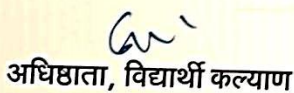 अधिष्ठाता, विद्यार्थी कल्याण